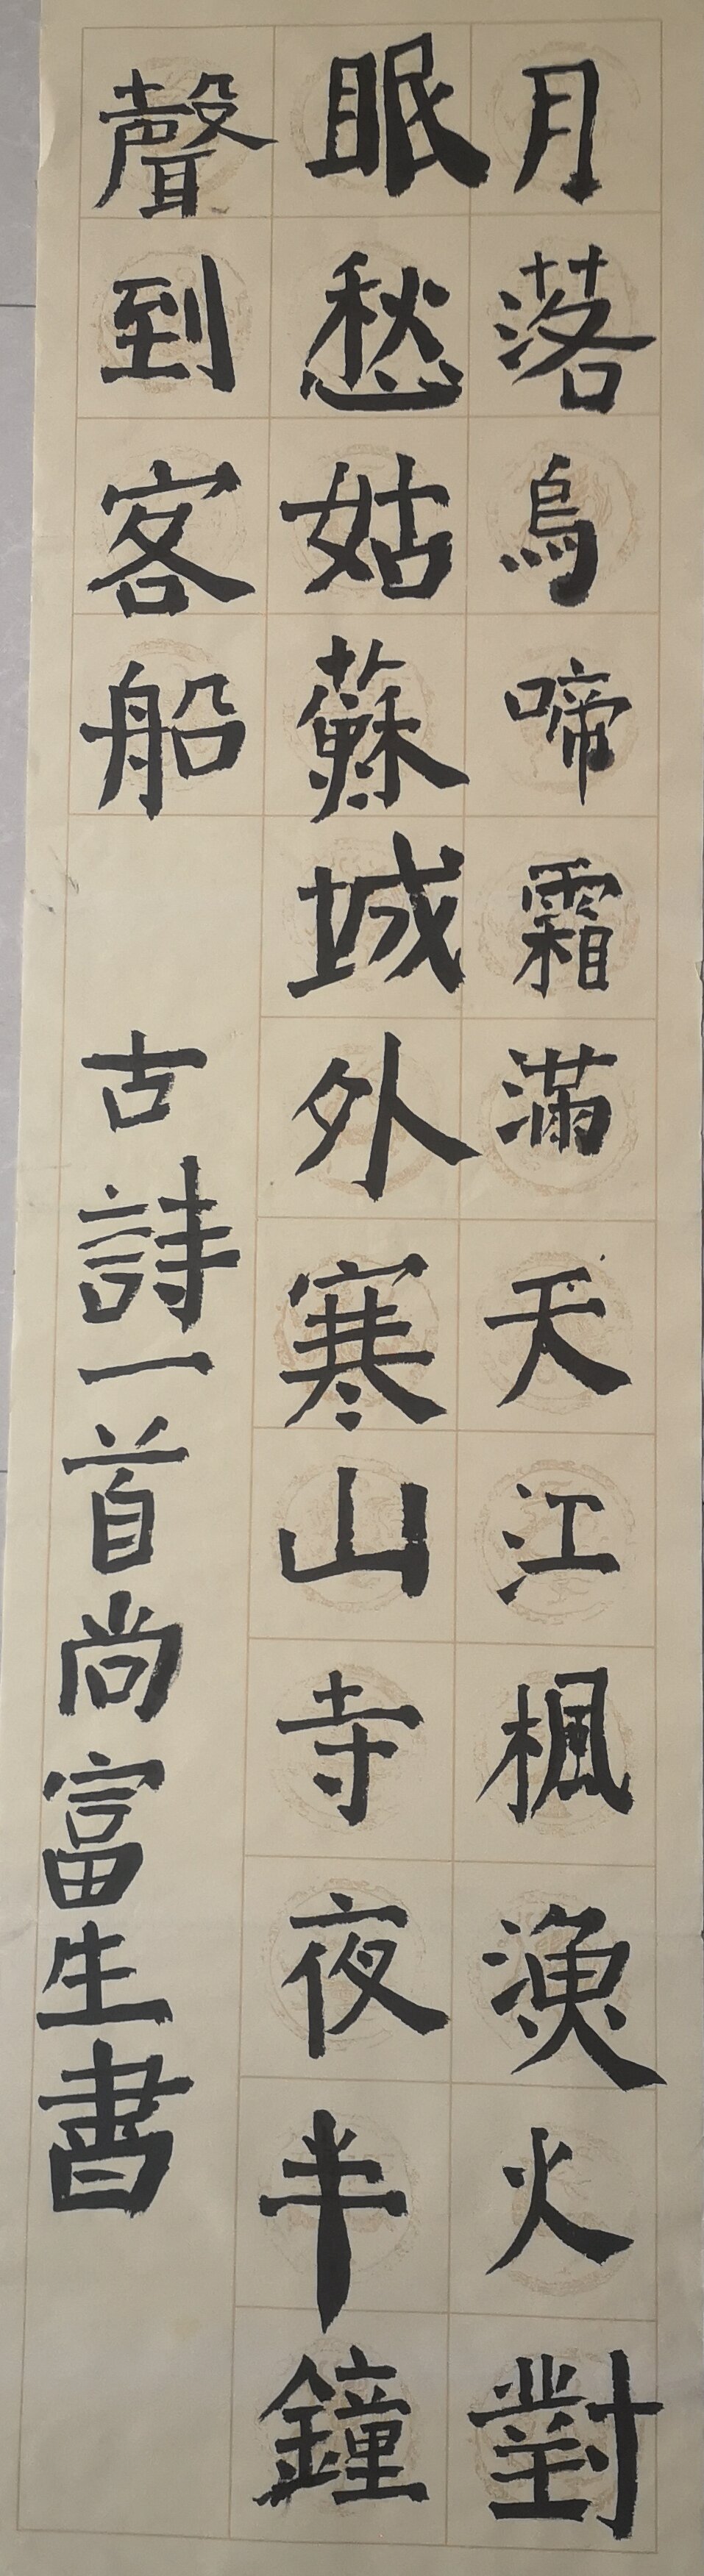 月落烏啼霜滿天江楓漁火對
眠愁姑蘇城外寒山寺夜半鐘
聲到客船 古詩一首尚富生書